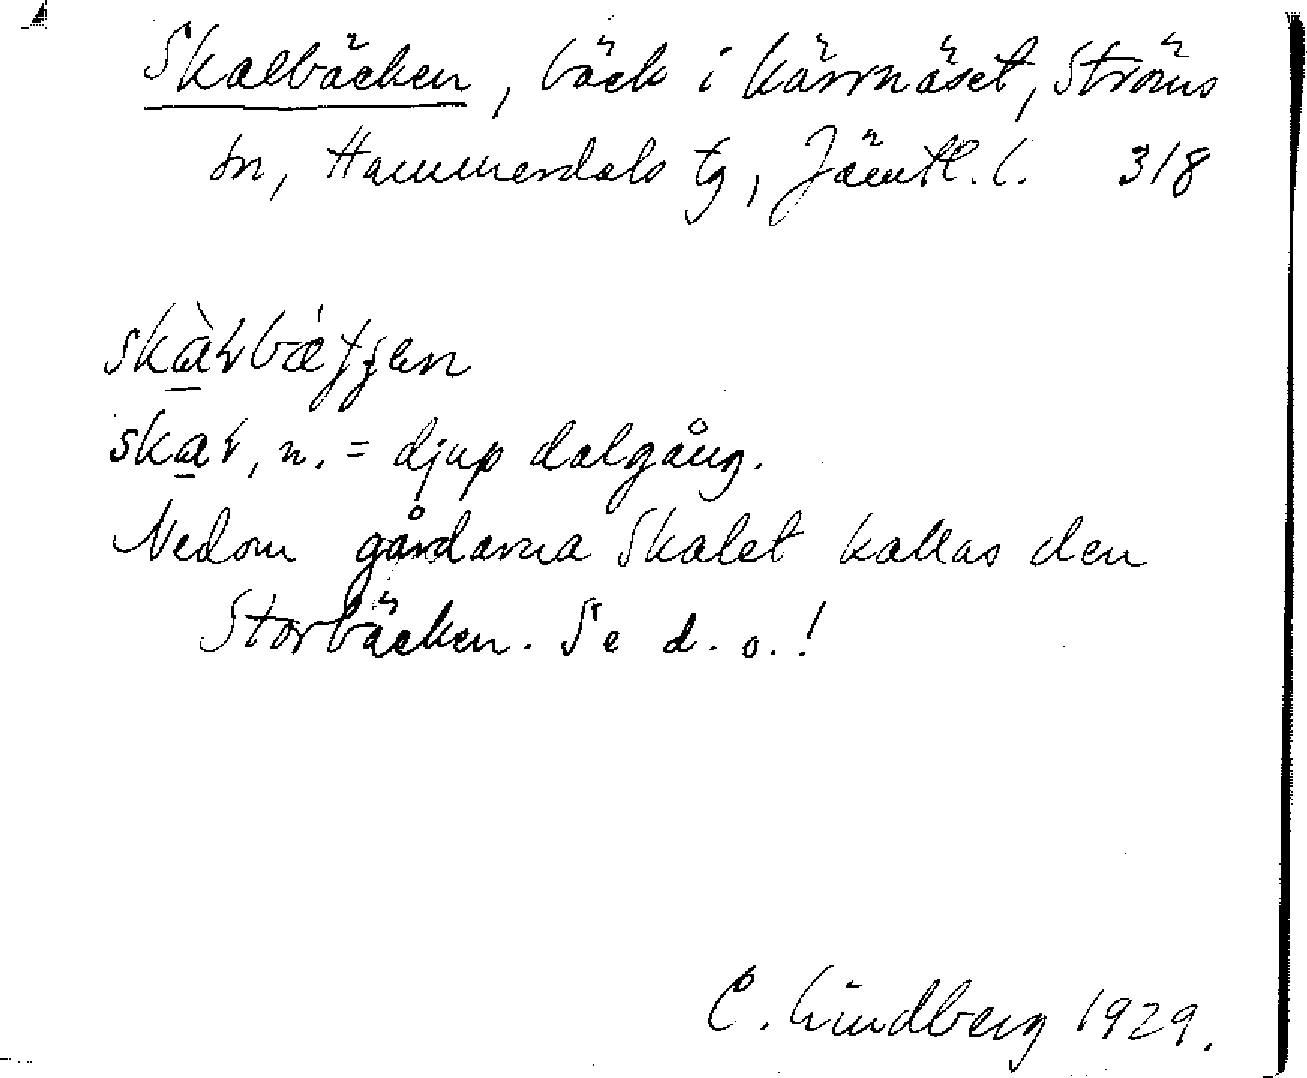 Skalbäcken, bäck i Kärrnäset, Ströms
sn, Hammerdals tg, Jämtl. l. 318
skàɽbǽʈʂen
skaɽ, n. = djup dalgång.
Nedom gårdarna Skalet kallas den
Storbäcken. Se d. o.!
C. Lindberg 1929.